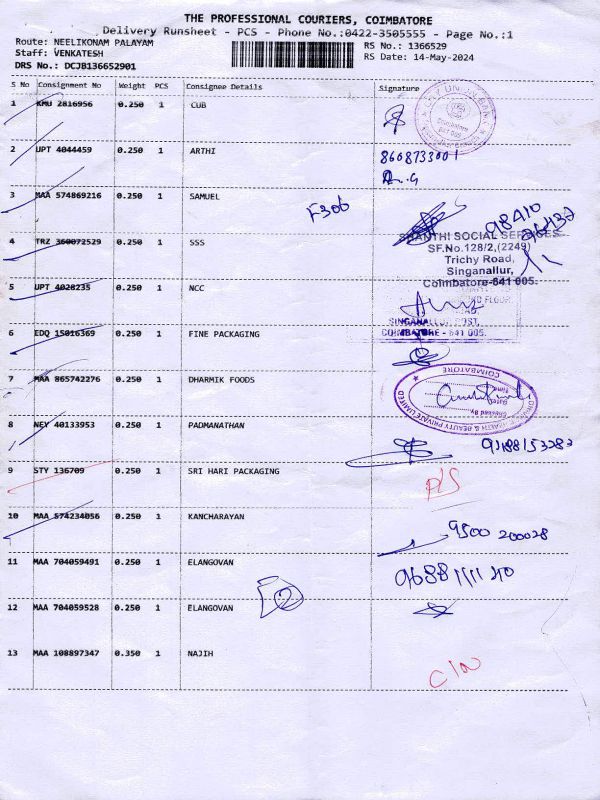 THE PROFESSIONAL COURIERS, COIMBATORE
Delivery Runsheet - PCS - Phone No.:0422-3505555 - Page No.:1
Route: NEELIKONAM PALAYAM
RS No.: 1366529
Staff: VENKATESH
RS Date: 14-May-2024
DRS No.: DCJB136652901
S No Consignment No Weight PCS Consignee Details Signature
1 KMU 2816956 0.250 1 CUB
2 UPT 4044459 0.250 1 ARTHI 8608733001
3 MAA 574869216 0.250 1 SAMUEL F306
98410
SHANTHI SOCIAL SERVICES
4 TRZ 360072529 0.250 1 SSS SF.No.128/2,(2249)
Trichy Road,
Singanallur,
Coimbatore-641 005.
5 UPT 4028235 0.250 1 NCC
SINGANALLUR POST,
COIMBATORE - 641 005.
6 EDQ 15016369 0.250 1 FINE PACKAGING
7 MAA 865742276 0.250 1 DHARMIK FOODS
COIMBATORE
8 NEY 40133953 0.250 1 PADMANATHAN
9 STY 136709 0.250 1 SRI HARI PACKAGING
10 MAA 574234056 0.250 1 KANCHARAYAN
9500 200028
11 MAA 704059491 0.250 1 ELANGOVAN
2
12 MAA 704059528 0.250 1 ELANGOVAN
13 MAA 108897347 0.350 1 NAJIH